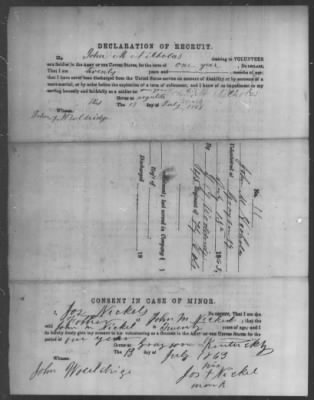 DECLARATION OF RECRUIT.
I, John M Nicholas desiring to VOLUNTEER
as a Soldier in the ARMY OF THE UNITED STATES, for the term of one year Do DECLARE,
That I am twenty years and months of age;
that I have never been discharged from the United States service on account of disability or by sentence of a
court-martial, or by order before the expiration of a term of enlistment; and I know of no impediment to my
serving honestly and faithfully as a soldier for one year
Given at
The 13 day of July
Witness:
John Wooldridge
No. 11
John M Nichols
Volunteered at Grayson Ky
July 13th 1863
By
Regiment of Ky
last served in Company ( )
Reg't of
Discharged 18
CONSENT IN CASE OF MINOR.
I, Jos Nickels Do CERTIFY, That I am the
Father of John M Nickel; that the
said John M Nickel is Twenty years of age; and I
do hereby freely give my consent to his volunteering as a SOLDIER in the ARMY OF THE UNITED STATES for the
period of one year
GIVEN at Grayson Kentucky
The 13 day of July 1863
Witness:
John Wooldridge
his
Jos + Nickel
mark